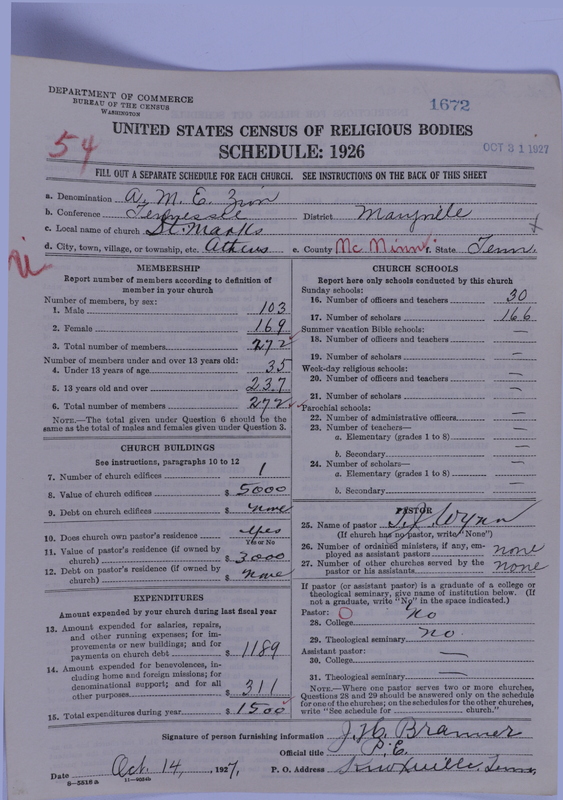 DEPARTMENT OF COMMERCE
BUREAU OF THE CENSUS
WASHINGTON
1672
54
UNITED STATES CENSUS OF RELIGIOUS BODIES
SCHEDULE: 1926
OCT 31 1927
FILL OUT A SEPARATE SCHEDULE FOR EACH CHURCH. SEE INSTRUCTIONS ON THE BACK OF THIS SHEET
a. Denomination A. M. E. Zion
b. Conference Tennessee District Maryville
c. Local name of church St. Marks
d. City, town, village, or township, etc. Athens e. County Mc Minn f. State Tenn.
MEMBERSHIP
Report number of members according to definition of
member in your church
Number of members, by sex:
1. Male 103
2. Female 169
3. Total number of members. 272
Number of members under and over 13 years old:
4. Under 13 years of age 35
5. 13 years old and over 237
6. Total number of members 272
NOTE.—The total given under Question 6 should be the
same as the total of males and females given under Question 3.
CHURCH BUILDINGS
See instructions, paragraphs 10 to 12
7. Number of church edifices 1
8. Value of church edifices $ 5000
9. Debt on church edifices $ none
10. Does church own pastor's residence yes
Yes or No
11. Value of pastor's residence (if owned by
church) $ 3000
12. Debt on pastor's residence (if owned by
church) $ none
EXPENDITURES
Amount expended by your church during last fiscal year
13. Amount expended for salaries, repairs,
and other running expenses; for im-
provements or new buildings; and for
payments on church debt $ 1189
14. Amount expended for benevolences, in-
cluding home and foreign missions; for
denominational support; and for all
other purposes $ 311
15. Total expenditures during year $ 1500
CHURCH SCHOOLS
Report here only schools conducted by this church
Sunday schools:
16. Number of officers and teachers 30
17. Number of scholars 166
Summer vacation Bible schools:
18. Number of officers and teachers —
19. Number of scholars —
Week-day religious schools:
20. Number of officers and teachers —
21. Number of scholars —
Parochial schools:
22. Number of administrative officers —
23. Number of teachers—
a. Elementary (grades 1 to 8) —
b. Secondary —
24. Number of scholars—
a. Elementary (grades 1 to 8) —
b. Secondary —
PASTOR
25. Name of pastor Wynn
(If church has no pastor, write "None")
26. Number of ordained ministers, if any, em-
ployed as assistant pastors none
27. Number of other churches served by the
pastor or his assistants none
If pastor (or assistant pastor) is a graduate of a college or
theological seminary, give name of institution below. (If
not a graduate, write "No" in the space indicated.)
Pastor: O
28. College No
29. Theological seminary no
Assistant pastor:
30. College —
31. Theological seminary —
NOTE.—Where one pastor serves two or more churches,
Questions 28 and 29 should be answered only on the schedule
for one of the churches; on the schedules for the other churches,
write "See schedule for ______ church."
Signature of person furnishing information J. H. Branner
Official title P. E.
Date Oct. 14, 1927. P. O. Address Knoxville Tenn.
8—5818 a 11—9034b